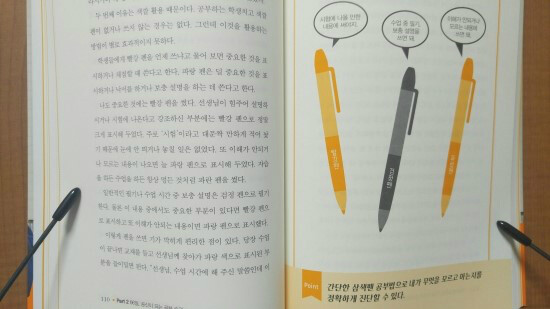 두 번째 이유는 색깔 활용 때문이다. 공부하는 학생치고 색깔
펜이 없거나 쓰지 않는 경우는 없다. 그런데 이것을 활용하는
방법이 별로 효과적이지 못하다.
학생들에게 빨강 펜을 언제 쓰냐고 물어 보면 중요한 것을 표
시하거나 채점할 때 쓴다고 한다. 파랑 펜은 덜 중요한 것을 표
시하거나 보충 설명을 하는 데 쓴다고 한다.
나도 중요한 것에는 빨강 펜을 썼다. 선생님이 힘주어 설명하
시거나 시험에 나온다고 강조하신 부분에는 빨강 펜으로 쌍말
크게 표시해 두었다. 주로 '시험'이라고 대문짝 만하게 적어 놓
기 때문에 눈에 안 띄거나 놓칠 일은 없었다. 또 이해가 안되거
나 모르고 내용이 나오면 늘 파랑 펜으로 표시해 두었다.
일반적인 필기나 수업 시간 중 보충 설명은 검정 펜으로 필기
한다. 물론 이 내용 중에서도 중요한 부분이 있다면 빨강 펜으
로 표시하고 또 이해가 안되는 내용이면 파랑 펜으로 표시했다.
이렇게 펜을 쓰면 기가 막히게 편리한 점이 있다. 담장 수업
이 끝나면 교재를 들고 선생님께 찾아가 파랑 색으로 표시된 부
분을 물어보면 된다. "선생님, 수업 시간에 해 주신 말씀인데 이
110 Part 2
시험에 나올 만한
내용에 써야지.
수업 중 필기,
보충 설명을
쓰면 돼.
이해가 안되거나
모르는 내용에
쓰면 돼.
빨강펜
검정펜
파랑펜
Point
간단한 삼색펜 공부법으로 내가 무엇을 모르고 아는지를
정확하게 진단할 수 있다.